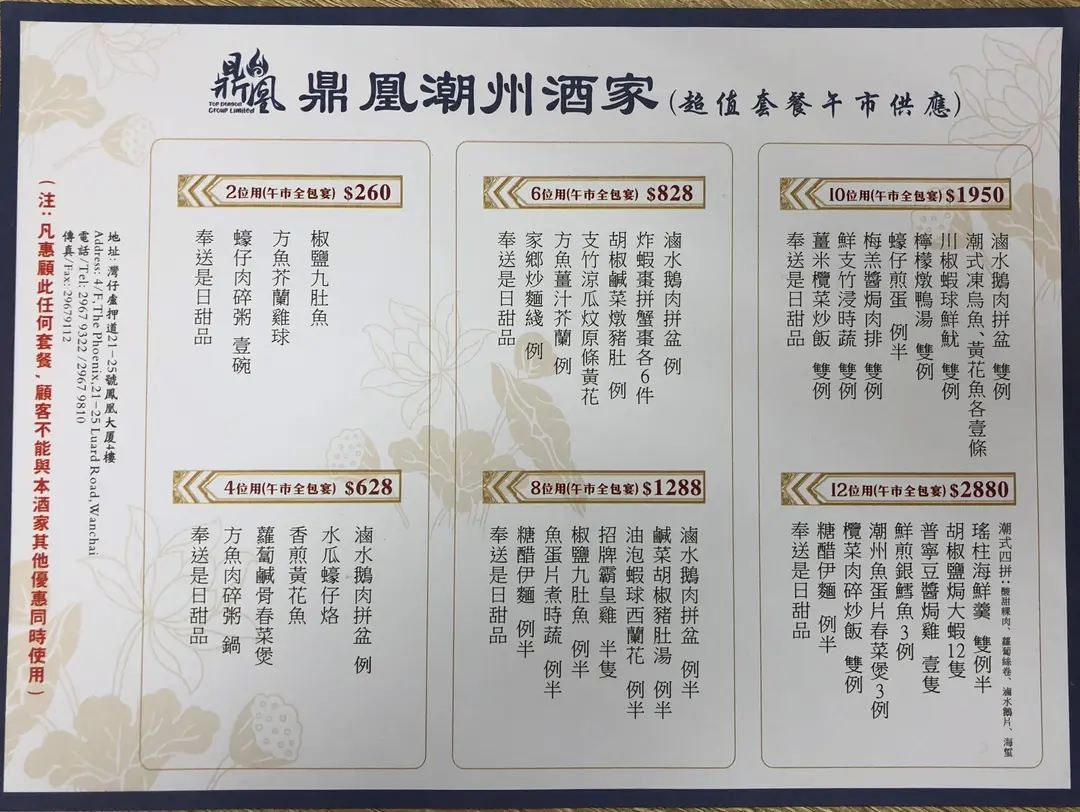 鼎凰
Top Dragon
Group Limited
鼎凰潮州酒家(超值套餐午市供應)
2位用(午市全包宴) $260
椒鹽九肚魚
方魚芥蘭雞球
蠔仔肉碎粥 壹碗
奉送是日甜品
6位用(午市全包宴) $828
滷水鵝肉拼盆 例
炸蝦棗拼蟹棗各6件
胡椒鹹菜燉豬肚 例
支竹涼瓜炆原條黃花
方魚薑汁芥蘭 例
家鄉炒麵綫 例
奉送是日甜品
10位用(午市全包宴) $1950
滷水鵝肉拼盆 雙例
潮式凍烏魚、黃花魚各壹條
川椒蝦球鮮魷 雙例
檸檬燉鴨湯 雙例
蠔仔煎蛋 例半
梅羔醬焗肉排 雙例
鮮支竹浸時蔬 雙例
薑米欖菜炒飯 雙例
奉送是日甜品
4位用(午市全包宴) $628
滷水鵝肉拼盆 例
水瓜蠔仔烙
香煎黃花魚
蘿蔔鹹骨春菜煲
方魚肉碎粥 鍋
奉送是日甜品
8位用(午市全包宴) $1288
滷水鵝肉拼盆 例半
鹹菜胡椒豬肚湯 例半
油泡蝦球西蘭花 例半
招牌霸皇雞 半隻
椒鹽九肚魚 例半
魚蛋片煮時蔬 例半
糖醋伊麵 例半
奉送是日甜品
12位用(午市全包宴) $2880
潮式四拼：酸甜粿肉、蘿蔔絲卷、滷水鵝片、海蜇
瑤柱海鮮羹 雙例半
胡椒鹽焗大蝦12隻
普寧豆醬焗雞 壹隻
鮮煎銀鱈魚3例
潮州魚蛋片春菜煲3例
欖菜肉碎炒飯 雙例
糖醋伊麵 例半
奉送是日甜品
地址: 灣仔盧押道21-25號鳳凰大厦4樓
Address: 4/F, The Phoenix, 21-25 Luard Road, Wanchai
電話/Tel: 2967 9322 /2967 9810
傳真/Fax: 29679112
(注：凡惠顧此任何套餐，顧客不能與本酒家其他優惠同時使用)